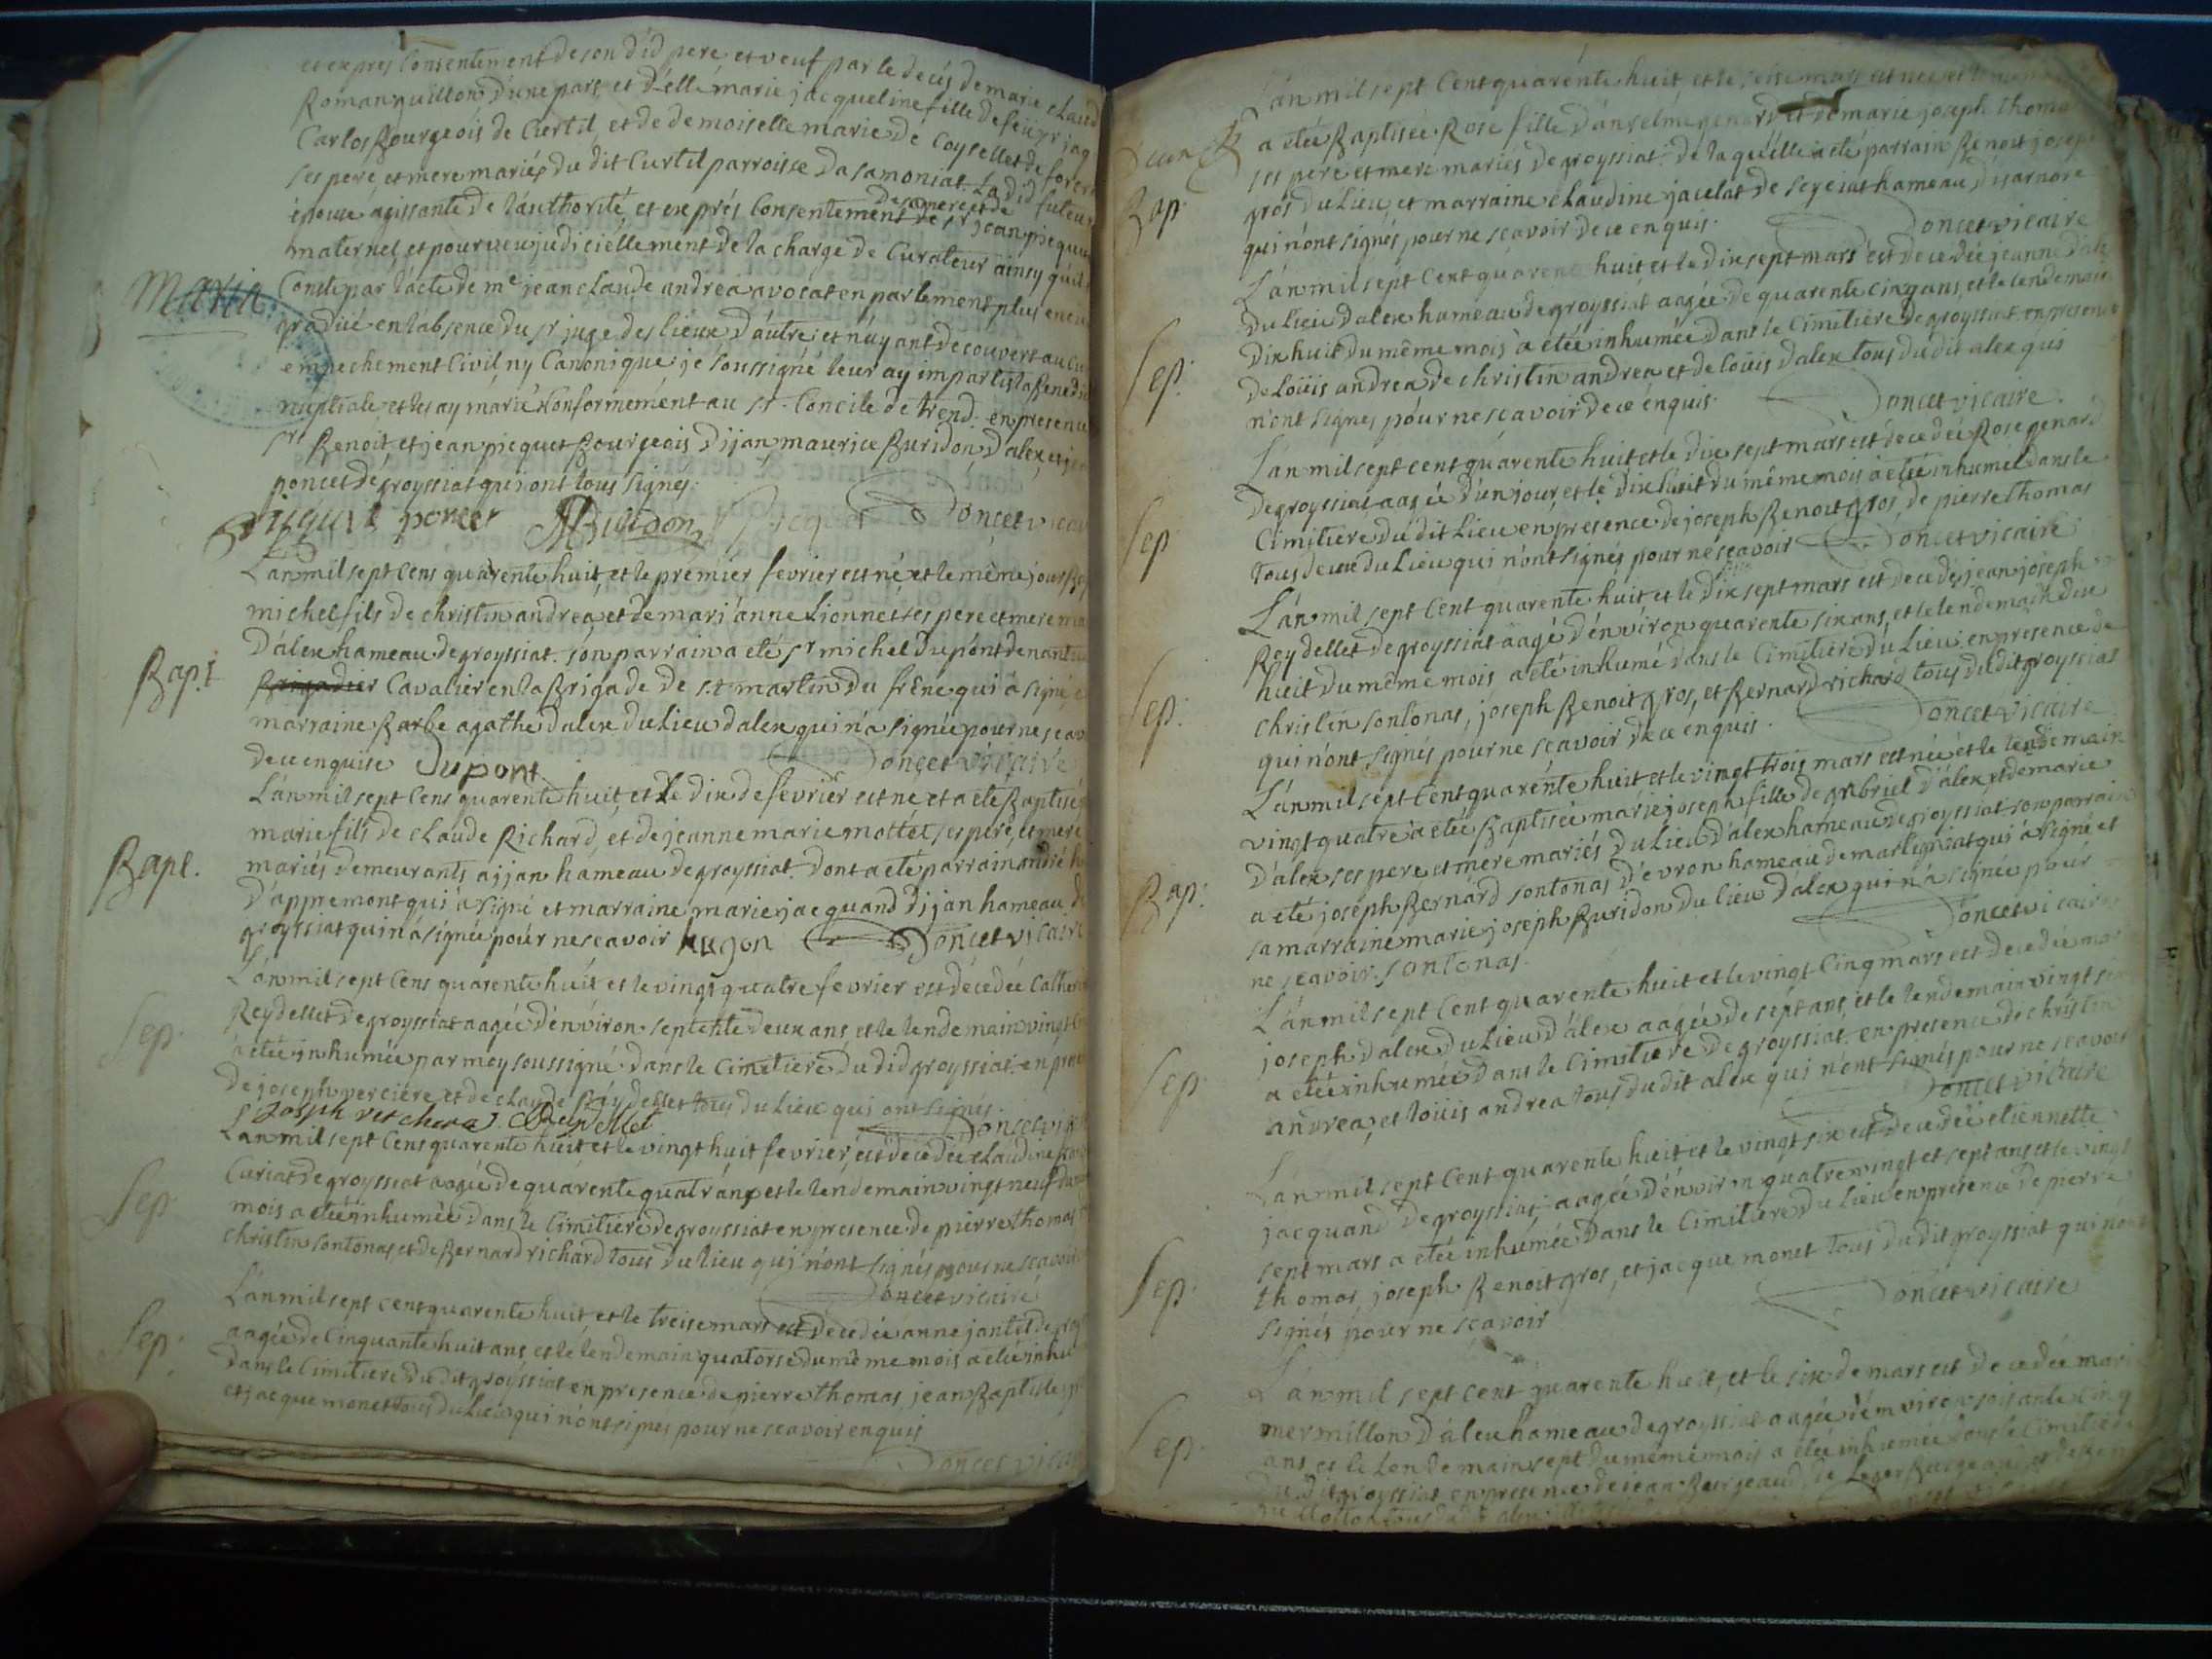 et exprés Consentement de son did pere et veuf par le decés de marie Claud
Romanguillon d'une part, et d'elle marie jacqueline fille de feu sr jaq
Carlos Bourgeois de Curtil, et de demoiselle marie de Coysellet de
ses pere et mere mariés du dit Curtil parroisse Da samoniat. Ladid future
de sa mere et de
épouse agissante de l'authorité et exprés Consentement de sr jean picquet
maternel et pourveu judiciéllement de la charge de Curateur ainsy qu'il
Maria
Conste par l'acte de me jean claude andrea avocat en parlement plus
gradüé en l'absence du sr juge des lieux D'autre; et n'ayant decouvert aucun
empechement Civil ny Canonique je soussigné leur ay impartis la Bened
nuptiale et les ay marié Conformément au st. Concile de trend. en presence
sr Benoit et jean picquet Bourgeois Dijan, maurice Buridon D'alex et
poncet de groyssiat qui ont tous signés.
picquet poncet MBuridon picquet Doncet vicai
L'an mil sept Cens quarente huit, et le premier fevrier est né et le même jour Bap
michel fils de christin andrea, et de mari'anne Lionnet ses pere et mere ma
Bap.t
D'alex hameau de groyssiat. son parrain a eté sr michel Dupont de nantua
Brigadier Cavalier en la Brigade de st martin du frêne qui a signé, et
marraine Barbe agathe Dalex du Lieu dalex qui n'a signée pour ne scav
de ce enquise Dupont Doncet vicaire
L'an mil sept Cens quarente huit, et le dix de fevrier est né et a eté Baptisé
marie fils de claude Richard, et de jeanne marie mottet, ses pere, et mere
Bapt.
mariés demeurants a ijan hameau de groyssiat. Dont a eté parrain andré h
D'appremont qui a signé et marraine marie jacquand Dijan hameau de
groyssiat qui n'a signée pour ne scavoir hugon Doncet vicaire
L'an mil sept Cens quarente huit et le vingt quatre fevrier est décédée Catheri
Sep.
Reydellet de groyssiat aagée d'environ septente deux ans, et le lendemain vingt
a etée inhumée par moy soussigné dans le Cimetiere du did groyssiat. en pres
de joseph verciere, et de claude Reydellet tous du Lieu qui ont signés.
Joseph verchera CReydellet Doncet vicai
L'an mil sept Cens quarente huit et le vingt huit fevrier, est décédée claudine
Sep.
Curiat de groyssiat aagée de quarente quatr'ans et le lendemain vingt neuf du
mois a etée inhumée dans le Cimitiere de groyssiat en presence de pierre thomas
christin sontonas, et de Bernard richard tous du lieu qui n'ont signés pour ne scavoir
Doncet vicaire
L'an mil sept cent quarente huit et le treise mars est décédée anne jantet de groy
Sep.
aagée de Cinquante huit ans et le lendemain quatorse du même mois a etée inhu
dans le Cimitiere du dit groyssiat en presence de pierre thomas, jean Baptiste
et jacque monet tous du Lieu qui n'ont signes pour ne scavoir enquis
Doncet vicai
L'an mil sept Cent quarente huit et le seise mars est née et le meme
a etée Baptisée Rose fille d'anselme genard et de marie joseph thoma
Bap.
ses pere et mere mariés de groyssiat. de laquelle a eté parrain Benoit josep
gros du Lieu, et marraine claudine javelat de seyciat hameau d'isarnore
qui n'ont signés pour ne scavoir de ce enquis. Doncet vicaire
L'an mil sept Cent quarente huit et le dix sept mars est decedée jeanne Dale
du lieu Dalex hameau de groyssiat aagée de quarente cinq ans, et le lendemain
Sep.
Dix huit du même mois a etée inhumée dans le Cimitiere de groyssiat en presence
de Loüis andrea de christin andrea et de loüis dalex tous du dit alex qui
n'ont signes pour ne scavoir de ce enquis. Doncet vicaire.
L'an mil sept cent quarente huit et le dix sept mars est decedée Rose genard
Sep.
de groyssiat aagée d'un jour, et le dix huit du même mois a etée inhumée dans le
Cimitiere du dit Lieu en presence de joseph Benoit gros, de pierre thomas
tous deux du Lieu qui n'ont signés pour ne scavoir Doncet vicaire
L'an mil sept Cent quarente huit et le dix sept mars est decedé jean joseph
Reydellet de groyssiat aagé d'environ quarente six ans, et le lendemain dix
Sep.
huit du même mois a eté inhumé dans le Cimitiere du Lieu en presence de
christin sontonas, joseph Benoit gros, et Bernard richard tous du dit groyssiat
qui n'ont signés pour ne scavoir de ce enquis. Doncet vicaire
L'an mil sept Cent quarente huit et le vingt trois mars est née et le lendemain
vingt quatre a etée Baptisée marie joseph fille de gabriel d'alex et de marie
Bap.
D'alex ses pere et mere mariés du Lieu D'alex hameau de groyssiat son parrain
a eté joseph Bernard sontonas D'evron hameau de martigniat qui a signé et
sa marraine marie joseph Buridon du lieu d'alex qui n'a signée pour
ne scavoir. sontonas. Doncet vicaire
L'an mil sept Cent quarente huit et le vingt Cinq mars est decedée mar
joseph dalex du Lieu d'alex aagée de sept ans, et le lendemain vingt six
Sep.
a etée inhumée dans le Cimitiere de groyssiat. en presence de christin
andrea, et loüis andrea tous du dit alex qui n'ont signés pour ne scavoir
Doncet vicaire
L'an mil sept Cent quarente huit et le vingt six est decedée etiennette
jacquand de groyssiat aagée d'environ quatre vingt et sept ans et le vingt
Sep.
sept mars a etée inhumée dans le Cimitiere du Lieu en presence de pierre
thomas, joseph Benoit gros, et jacque monet tous du dit groyssiat qui n'ont
signés pour ne scavoir Doncet vicaire
L'an mil sept cent quarente huit, et le six de mars est decedée marie
Sep.
mermillon d'alex hameau de groyssiat aagée d'environ soixante Cinq
ans et le lendemain sept du même mois a etée inhumée dans le Cimitiere
du dit groyssiat en presence de jean Burgeaud, de Leger Burgeaud
tous du dit alex